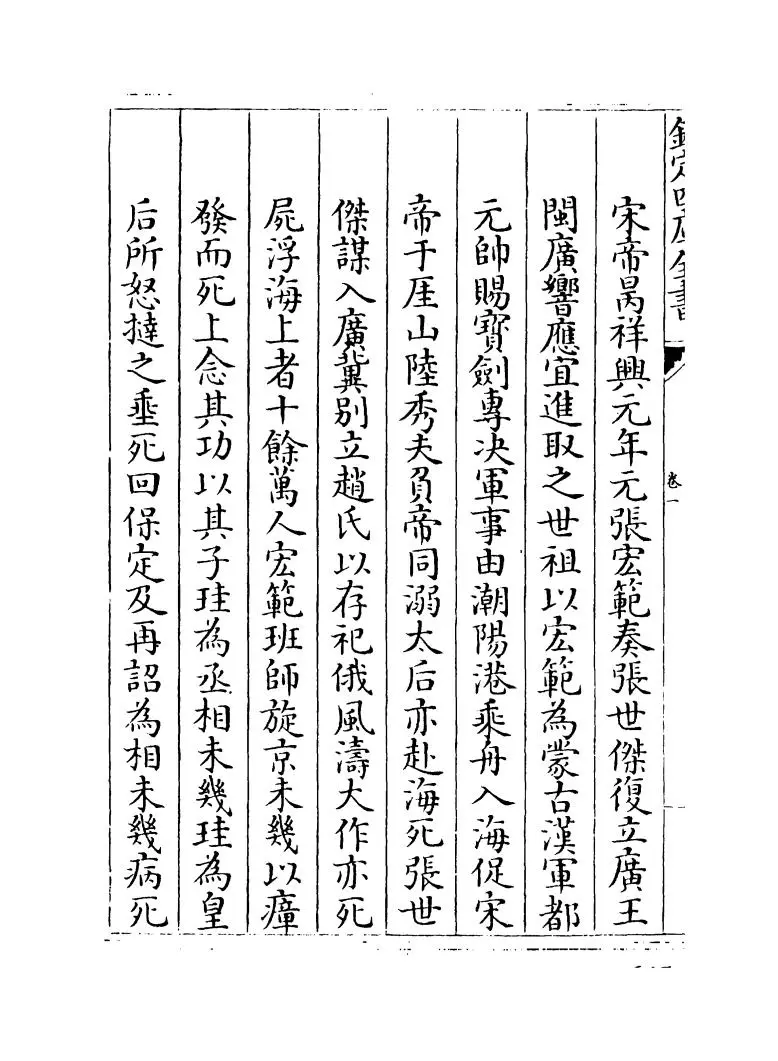 欽定四庫全書
卷一
宋帝昺祥興元年元張宏範奏張世傑復立廣王
閩廣響應宜進取之世祖以宏範為蒙古漢軍都
元帥賜寶劍專决軍事由潮陽港乘舟入海促宋
帝于厓山陸秀夫負帝同溺太后亦赴海死張世
傑謀入廣冀别立趙氏以存祀俄風濤大作亦死
屍浮海上者十餘萬人宏範班師旋京未幾以瘴
發而死上念其功以其子珪為丞相未幾珪為皇
后所怒撻之垂死回保定及再詔為相未幾病死